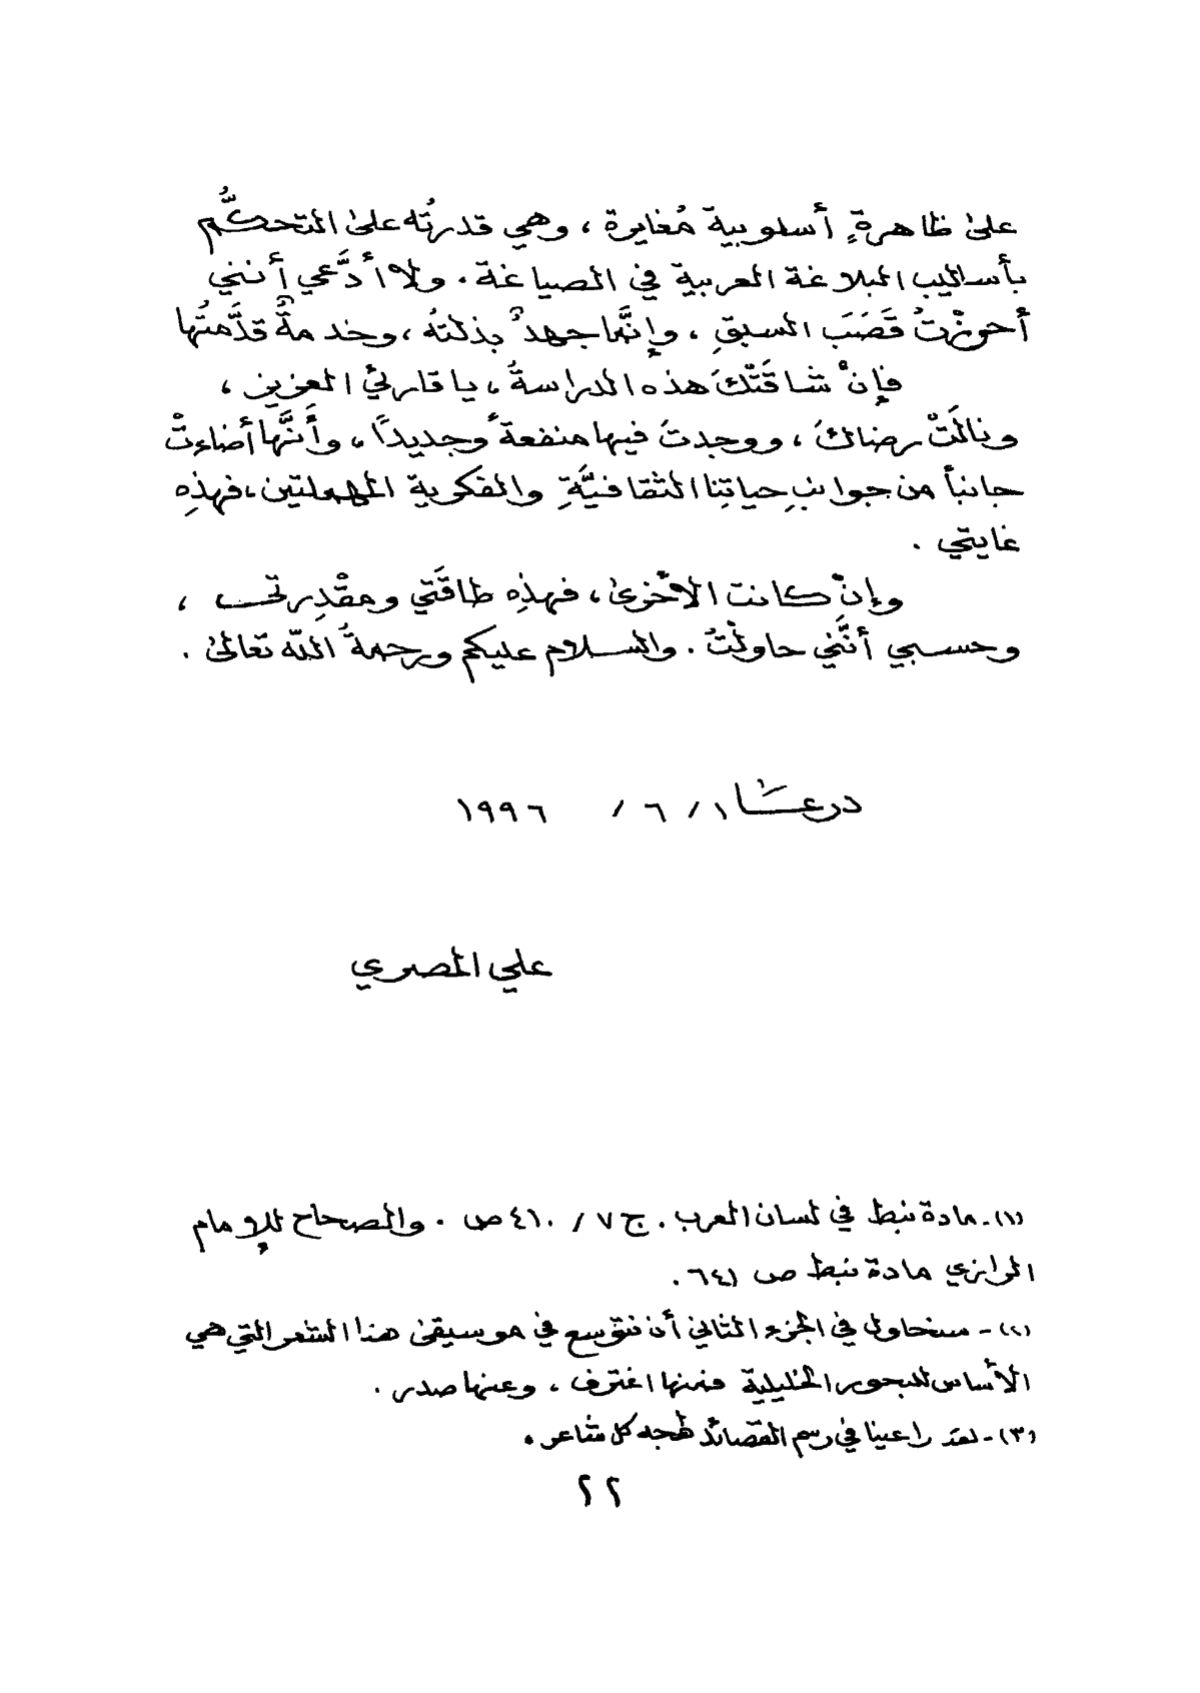 على ظاهرةٍ أسلوبية مُغايرة ، وهي قدرتُه على التحكُّم
بأساليب البلاغة العربية في الصياغة . ولا أدَّعي أنني
أحوزْتُ قَصَبَ السبقِ ، وإنَّما جهدٌ بذلتهُ ، وخدمةٌ قدَّمتُها
فإنْ شاقَتْكَ هذه الدراسةُ ، يا قارئي العزيز ،
ونالَتْ رضاكَ ، ووجدتَ فيها منفعةً وجديداً ، وأنَّها أضاءتْ
جانباً من جوانبِ حياتِنا الثقافيَّةِ والفكرية المهملتين ، فهذِهِ
غايتي .
وإنْ كانت الأخرى ، فهذِه طاقَتي ومقْدِرتي ،
وحسبي أنَّني حاولْتُ . والسلام عليكم ورحمةُ اللّه تعالى .
درعا ١/ ٦ / ١٩٩٦
علي المصري
(١)- مادة نبط في لسان العرب . ج ٧ / ٤١٠ ص . والصحاح للإمام
الرازي مادة نبط ص ٦٤١ .
(٢)- سنحاول في الجزء الثاني أن نتوسع في موسيقى هذا الشعر التي هي
الأساس للبحور الخليلية فمنها اغترف ، وعنها صدر .
(٣)- لقد راعينا في رسم القصائد لهجه كل شاعر .
٢٢